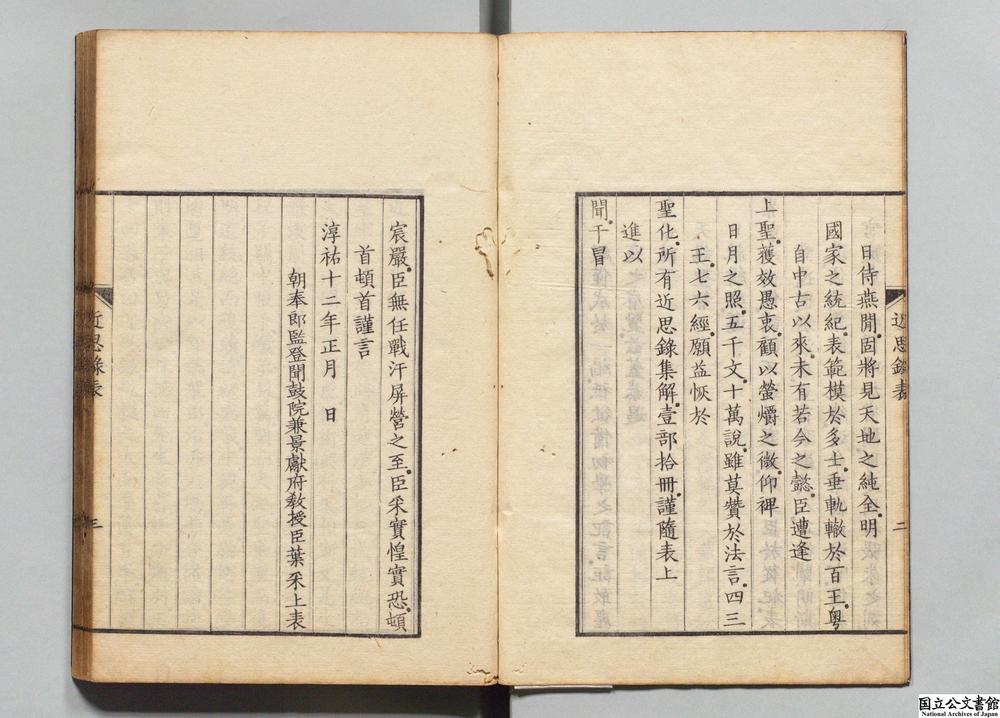 日侍燕閒固將見天地之純全明
國家之統紀表範模於多士垂軌轍於百王粤
自中古以來未有若今之懿臣遭逢
上聖獲效愚衷顧以螢爝之微仰裨
日月之照五千文十萬說雖莫贊於法言四三
王七六經願益恢於
聖化所有近思錄集解壹部拾冊謹隨表上
進以
聞干冒
近思錄表
二
宸嚴臣無任戰汗屏營之至臣采實惶實恐頓
首頓首謹言
淳祐十二年正月 日
朝奉郎監登聞鼓院兼景獻府教授臣葉采上表
近思錄表
三
国立公文書館
National Archives of Japan